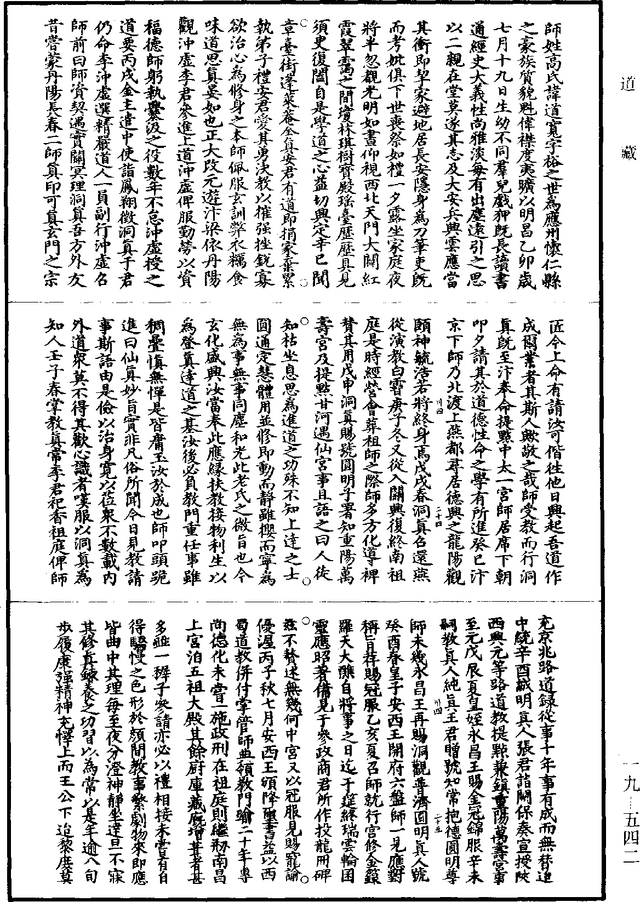 道藏
師姓高氏諱道寬字裕之世為應州懷仁縣
之家族質貌魁偉襟度夷曠以明昌乙卯歲
七月十九日生幼不同群兒戲狎既長讀書
通經史大義性尚雅淡每有出塵遠引之思
以二親在堂莫遂其志及大安兵興雲應當
其衝即挈家避地居長安隱身為刀筆吏既
而考妣俱下世喪祭如禮一夕露坐家庭夜
將半忽覩光明如晝仰視西北天門大開紅
霞翠靄之間瓊林琪樹寶殿瑤臺歷歷具見
須臾復闔自是學道之心益切興定辛巳聞
章臺街蓬萊菴全真安君有道即捐家棄累
執弟子禮安君愛其勇決教以摧强挫銳寡
欲治心為修身之本師佩服玄訓弊衣糲食
味道思真晏如也正大改元遊汴梁依丹陽
觀沖虛李君參進上道沖虛俾服勤勞以資
福德師躬執爨汲之役數年不怠沖虛授之
道要丙戌金主遣中使詣鳳翔徵洞真于君
仍命李沖虛選精嚴道人一員副行沖虛名
師前曰師資契遇實關冥理洞真吾方外友
昔嘗蒙丹陽長春二師真印可真玄門之宗
匠今上命有請汝可偕往他日興起吾道作
成爾業者其斯人歟敬之哉師受教而行洞
真既至汴奉命提點中太一宮師居席下朝
叩夕請其於道德性命之學有所進癸巳汴
卅四 二十四
京下師乃北渡上燕都尋居德興之龍陽觀
頤神毓浩若將終身焉戊戌春洞真召還燕
從演教白霫庚子冬又從入關興復終南祖
庭是時經營會葬祖師之際師多方化導裨
贊其用戊申洞真賜號圓明子署知重陽萬
壽宮及提點甘河遇仙宮事且語之曰人徒
知枯坐息思為進道之功殊不知上達之士
圓通定慧體用並修即動而靜雖攖而寧為
無為事無事同塵和光此老氏之微旨也今
玄化盛興汝當奉此應緣扶教接物利生以
為登真達道之基汝後必負教門重任事雖
稠疊慎無憚是皆庸玉汝於成也師叩頭跪
進曰仙真妙旨實非凡俗所聞今日見教請
事斯語由是儉以治身寬以莅衆不數載內
外道衆莫不得其歡心識者嘆服以洞真為
知人壬子春掌教真常李君祀香祖庭俾師
充京兆路道錄從事十年事有成而無替迨
中統辛酉誠明真人張君詣闕保奏宣授陝
西興元等路道教提點兼領重陽萬壽宮事
至元戊辰夏皇姪永昌王賜金元錦服辛未
嗣教真人純真王君贈號知常抱德圓明尊
卅四 二十五
師未幾永昌王再賜洞觀普濟圓明真人號
癸酉春皇子安西王開府六盤師一見應對
稱旨荐賜冠服乙亥夏召師就行宮修金籙
羅天大醮自將事之日迄于筵終瑞雲輪囷
靈應昭著備見于參政商君所作投龍冊碑
茲不贅述無幾何中宮又以冠服見賜寵諭
優渥丙子秋七月安西王頒降璽書益以西
蜀道教併付掌管師典領教門踰二十年專
尚德化未嘗一施政刑在祖庭則繼剏南昌
上宮洎五祖大殿其餘厨庫藏厩增葺者甚
多雖一稺子參請亦必以禮相接未嘗有自
得驕慢之色形於顏間教事繁劇物來即應
皆曲中其理每至夜分澄神靜坐達旦不寐
其修真鍊養之功習以為常以是年逾八旬
步履康强精神充懌上而王公下迨黎庶莫
一九—五四二